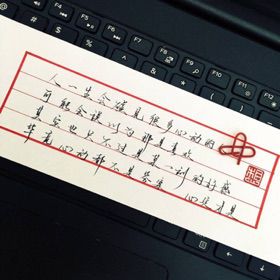 人一生会碰见很多心动的
可能会误以为那是喜欢
其实也只不过是某一刻的好感
毕竟 心动都不是答案 心定才是